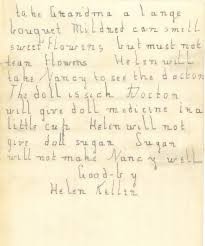 take Grandma a large
bouquet Mildred can smell
sweet flowers but must not
tear flowers Helen will
take Nancy to see the doctor
The doll is sick Doctor
will give doll medicine in a
little cup Helen will not
give doll sugar Sugar
will not make Nancy well
Good-by
Helen Keller